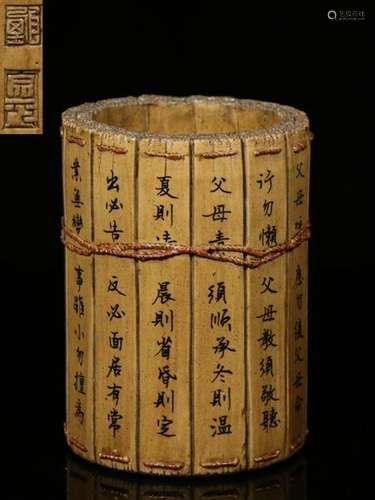 父母呼應勿緩父母命
行勿懶父母教須敬聽
父母責須順承冬則溫
夏則凊晨則省昏則定
出必告反必面居有常
業無變事雖小勿擅為